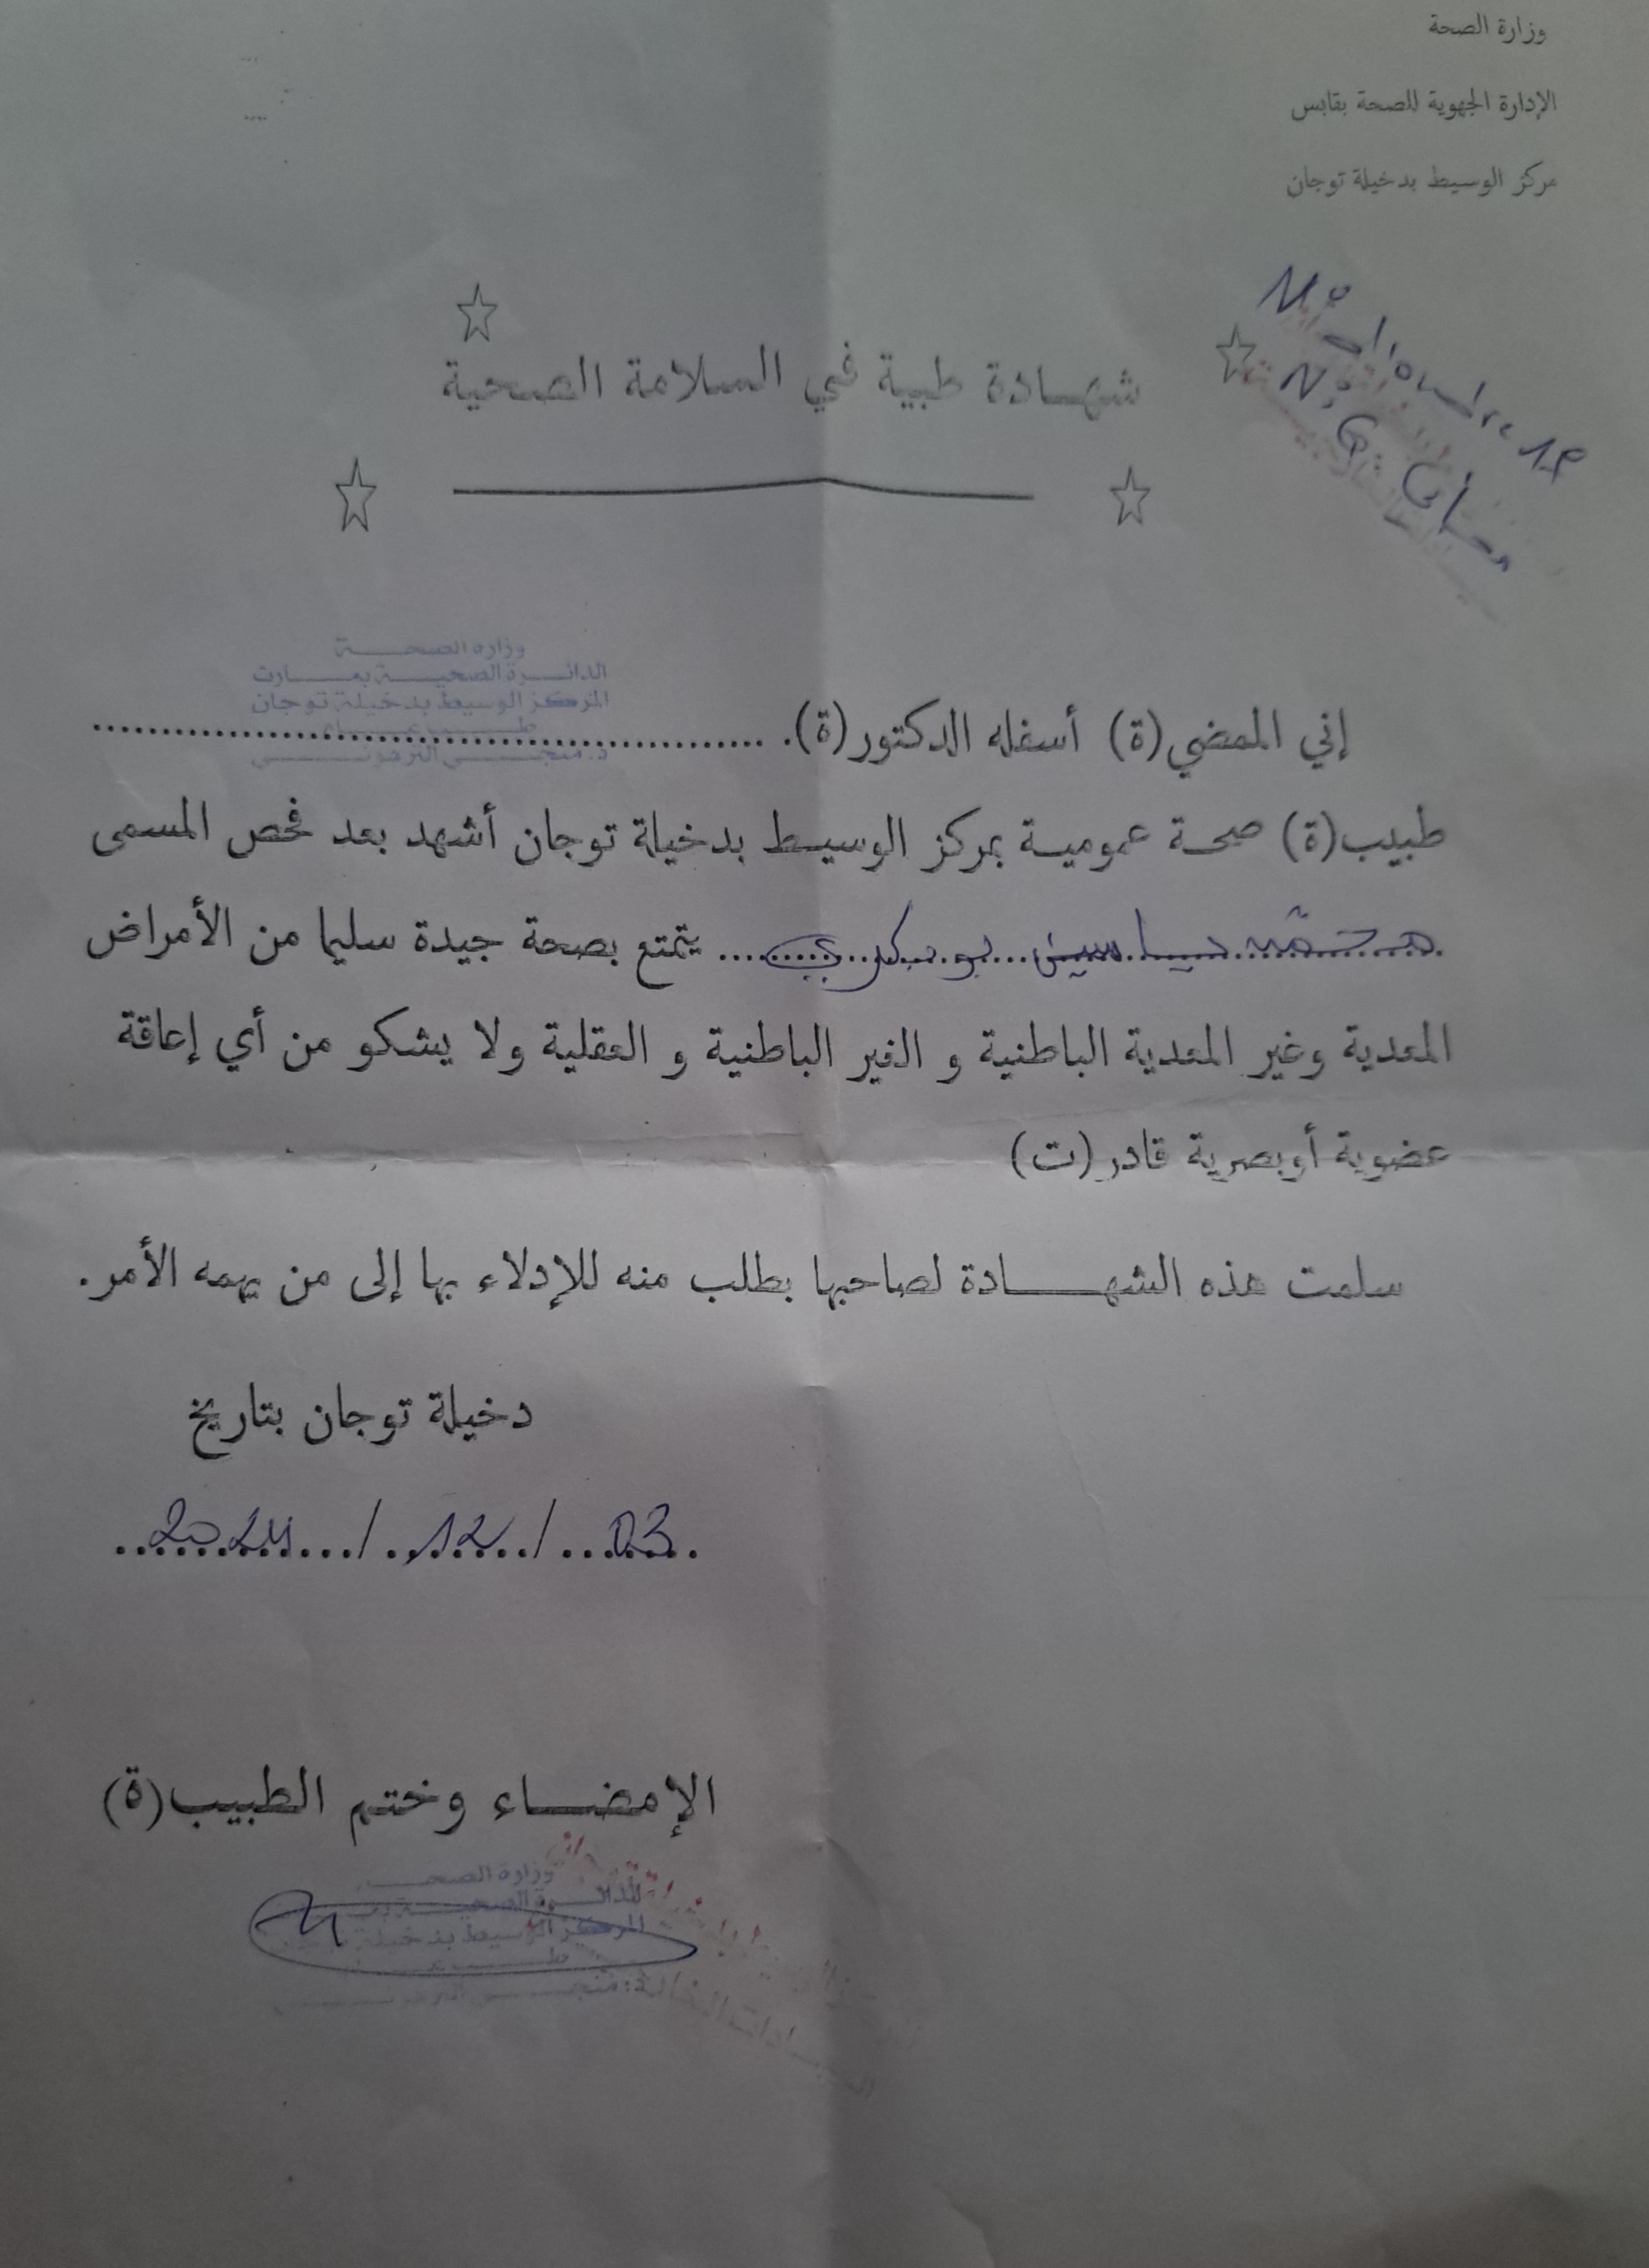 وزارة الصحة
الإدارة الجهوية للصحة بقابس
مركز الوسيط بدخيلة توجان
شهـادة طبية في السلامة الصحية
وزارة الصحـــة
الدائـرة الصحيـة بمـارث
المركز الوسيط بدخيلة توجان
إني الممضي(ة) أسفله الدكتور(ة). ..........................................
طبيب(ة) صحة عمومية بمركز الوسيط بدخيلة توجان أشهد بعد فحص المسمى
محمد ياسين بوبكري ..... يتمتع بصحة جيدة سليما من الأمراض
المعدية وغير المعدية الباطنية و الغير الباطنية و العقلية ولا يشكو من أي إعاقة
عضوية أوبصرية قادر(ت)
سلمت هذه الشهـــادة لصاحبها بطلب منه للإدلاء بها إلى من يهمه الأمر.
دخيلة توجان بتاريخ
03 / 12 / 2024
الإمضـــاء وختم الطبيب(ة)
وزارة الصحـــة
المركز الوسيط بدخيلة